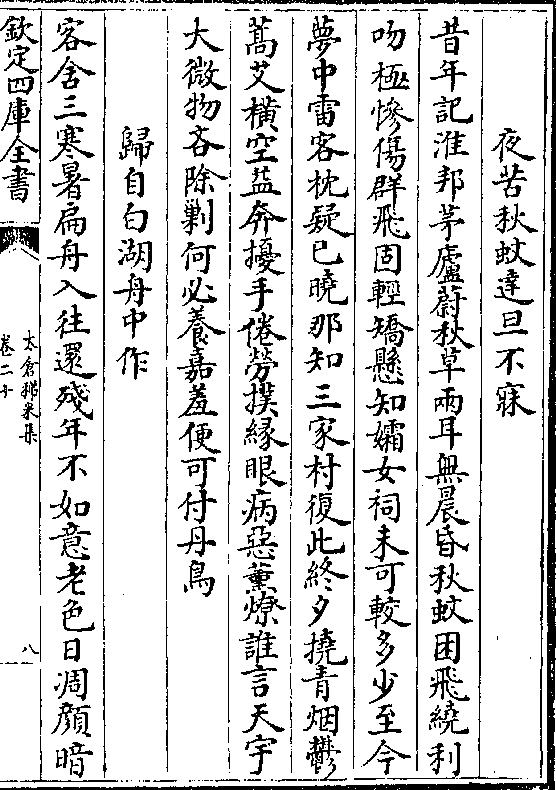 夜苦秋蚊達旦不寐
昔年記淮邦茅廬蔚秋草兩耳無晨昏秋蚊困飛繞利
吻極慘傷群飛固輕矯懸知孀女祠未可較多少至今
夢中雷客枕疑已曉那知三家村復此終夕撓青烟鬱
蒿艾橫空益奔擾手倦勞撲緣眼病惡薫燎誰言天宇
大微物吝除剿何必養嘉羞便可付丹鳥
歸自白湖舟中作
客舍三寒暑扁舟入往還殘年不如意老色日凋顔暗
欽定四庫全書
太倉稊米集
卷二十
八